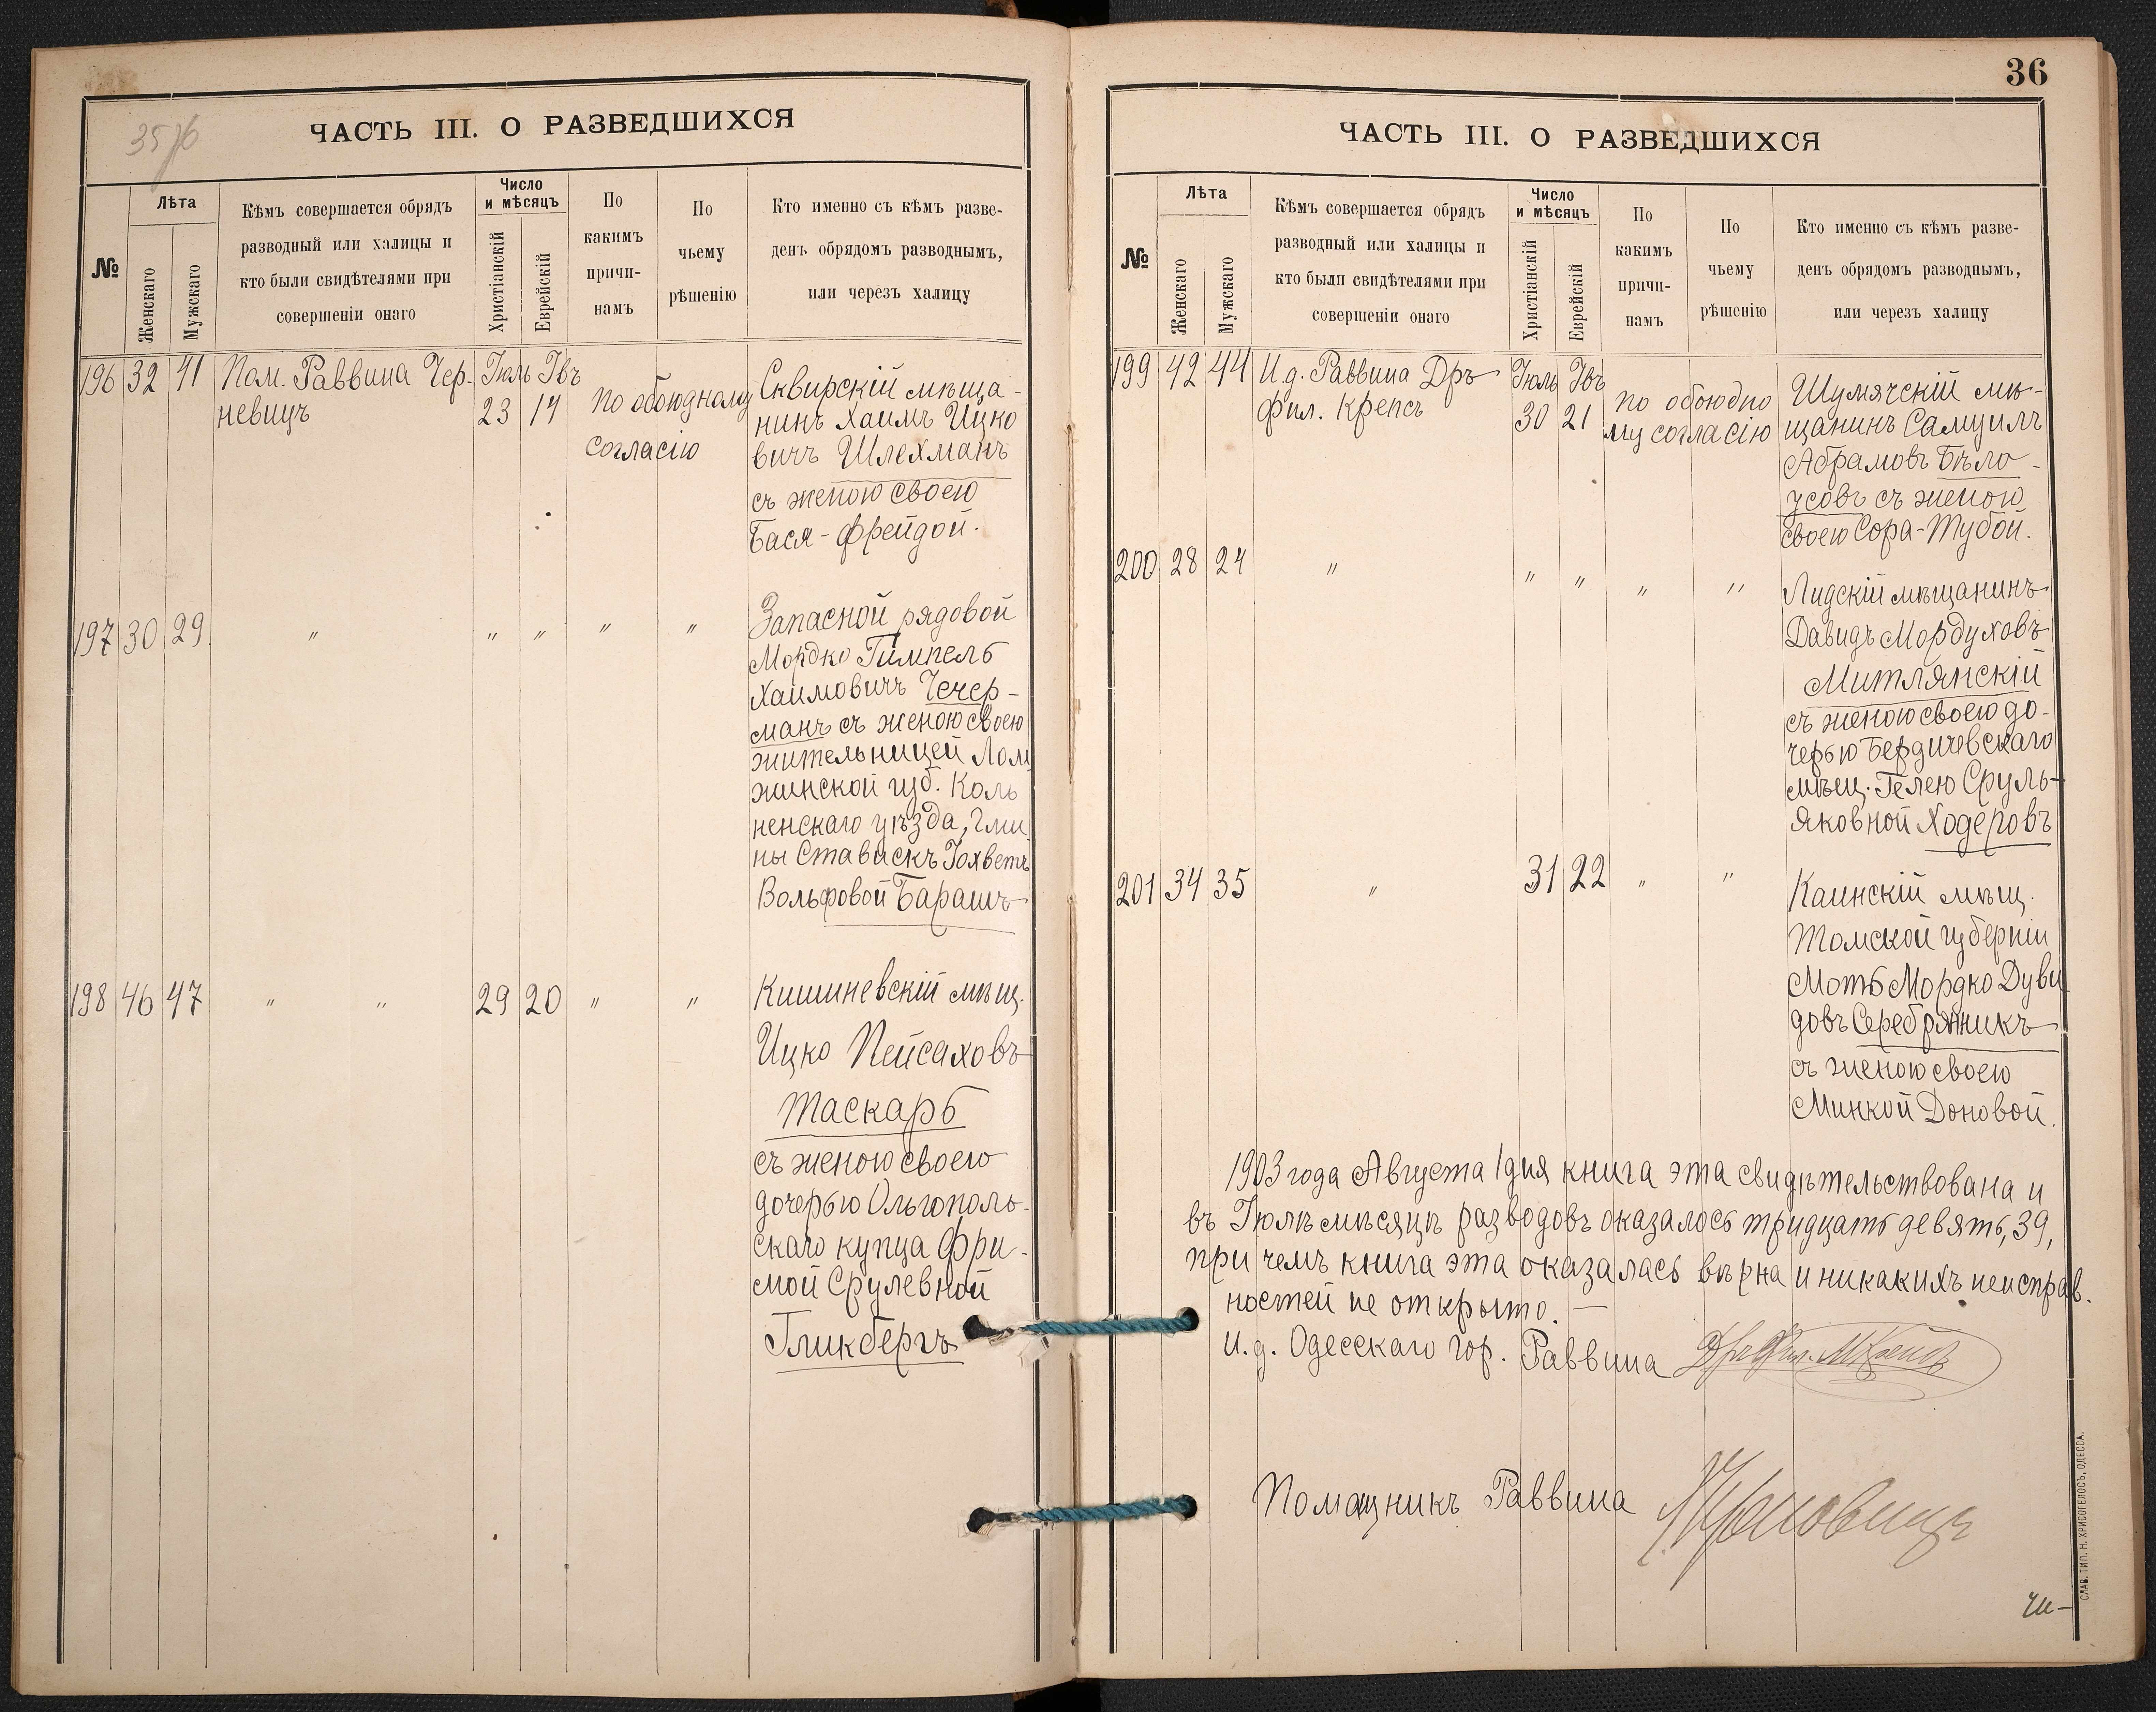 35 об
ЧАСТЬ III. О РАЗВЕДШИХСЯ
№
Лѣта
Женскаго
Мужскаго
Кѣмъ совершается обрядъ
разводный или халицы и
кто были свидѣтелями при
совершеніи онаго
Число
и мѣсяцъ
Христіанскій
Еврейскій
По
какимъ
причи-
намъ
По
чьему
рѣшенію
Кто именно съ кѣмъ разве-
денъ обрядомъ разводнымъ,
или черезъ халицу
196 32 41 Пом. Раввина Чер-
невицъ
Іюль Івъ
23 14
По обоюдному
согласію
Сквирскій мѣща-
нинъ Хаимъ Ицко
вичъ Шлехманъ
съ женою своею
Бася-Фрейдой.
197 30 29. " " " " "
Запасной рядовой
Мордко Гимпель
Хаимовичъ Чечер-
манъ съ женою своею
жительницей Лом
жинской губ. Коль
ненскаго уѣзда, Гми
ны Ставискъ Іохветъ
Вольфовой Барашъ
198 46 47 " " 29 20 " "
Кишиневскій мѣщ.
Ицко Пейсаховъ
Таскаръ
съ женою своею
дочерью Ольгополь-
скаго купца Фри-
мой Срулевной
Гликбергъ
36
ЧАСТЬ III. О РАЗВЕДШИХСЯ
№
Лѣта
Женскаго
Мужскаго
Кѣмъ совершается обрядъ
разводный или халицы и
кто были свидѣтелями при
совершеніи онаго
Число
и мѣсяцъ
Христіанскій
Еврейскій
По
какимъ
причи-
намъ
По
чьему
рѣшенію
Кто именно съ кѣмъ разве-
денъ обрядомъ разводнымъ,
или черезъ халицу
199 42 44 И.д. Раввина Дръ
фил. Крепсъ
Іюль Івъ
30 21
по обоюдно
му согласію
Шумячскій мѣ-
щанинъ Самуилъ
Абрамовъ Бѣло-
усовъ съ женою
своею Сора-Тубой.
200 28 24 " " " " "
Лидскій мѣщанинъ
Давидъ Мордуховъ
Митлянскій
съ женою своею до-
черью Бердичевскаго
мѣщ. Гелею Сруль-
Яковной Ходеровъ
201 34 35 " 31 22 " "
Каинскій мѣщ.
Томской губерніи
Моть Мордко Дуви
довъ Серебряникъ
съ женою своею
Минкой Доновой.
1903 года Августа 1 дня книга эта свидѣтельствована и
въ Іюлѣ мѣсяцѣ разводовъ оказалось тридцать девять, 39,
при чемъ книга эта оказалась вѣрна и никакихъ неисправ.
ностей не открыто. —
И.д. Одесскаго гор. Раввина Дръ Фил. М Крепсъ
Помощникъ Раввина Черновицъ
СЛАВ. ТИП. Н. ХРИСОГЕЛОСЪ, ОДЕССА.